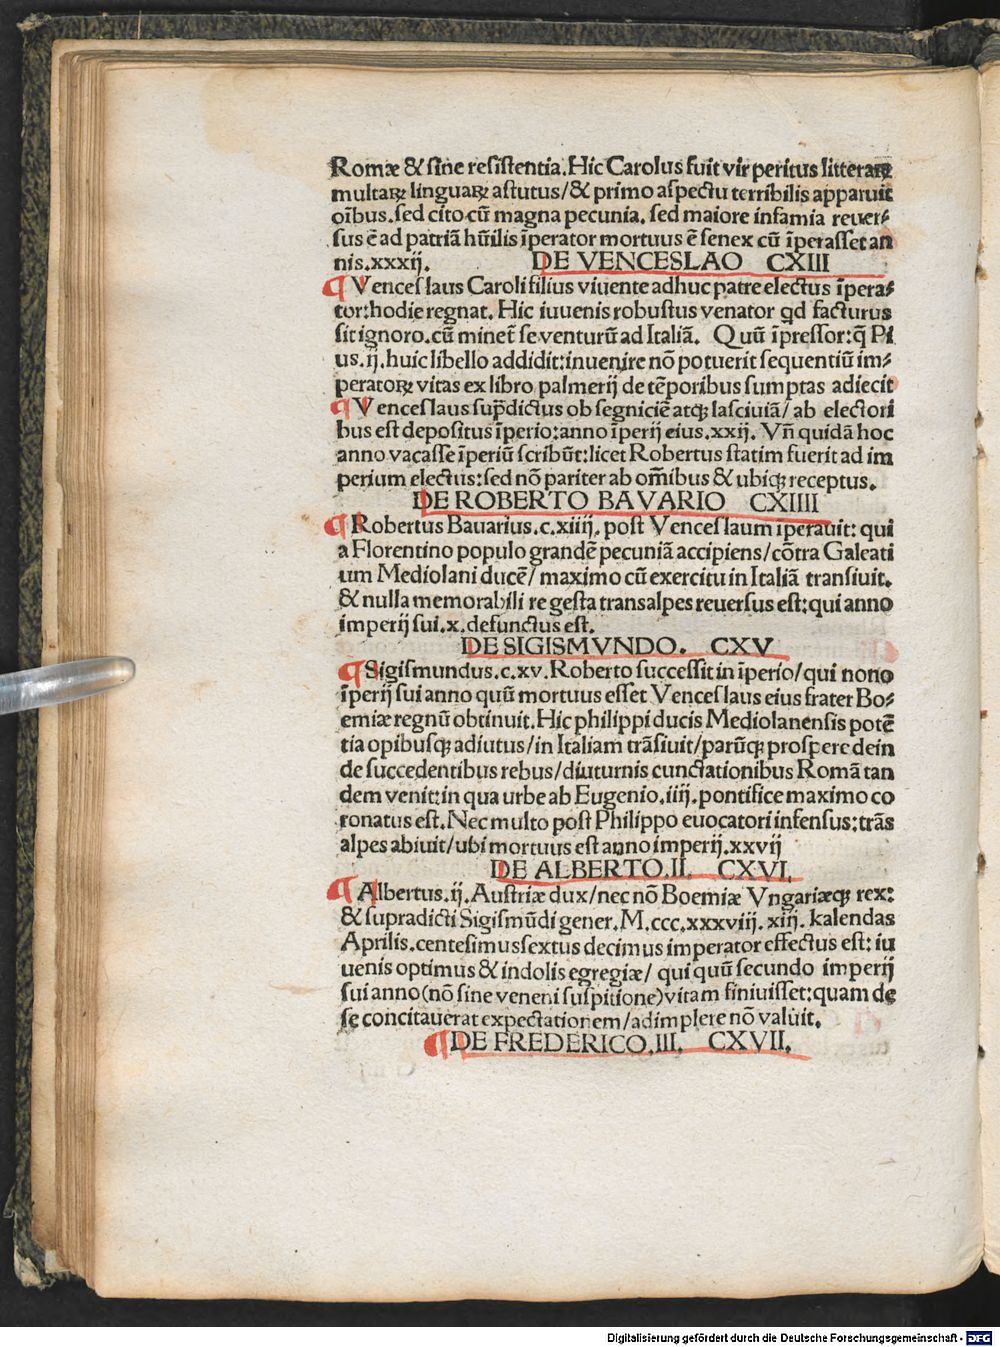 Romæ & ſine reſiſtentia. Hic Carolus fuit vir peritus litteraꝝ
multaꝝ linguaꝝ aſtutus/& primo aſpectu terribilis apparuit
oībus. ſed cito cū magna pecunia. ſed maiore infamia reuer⸗
ſus ē ad patriā hūilis īperator mortuus ē ſenex cū īperaſſet an
nis.xxxij. DE VENCESLAO CXIII
¶ Venceſlaus Caroli filius viuente adhuc patre electus īpera⸗
tor:hodie regnat. Hic iuuenis robuſtus venator qd facturus
ſit ignoro. cū minet̄ ſe venturū ad Italiā. Quū īpreſſor:q̄ Pi
us.ij.huic libello addidit:inuenire nō potuerit ſequentiū im⸗
peratoꝝ vitas ex libro palmerij de tēporibus ſumptas adiecit
¶ Venceſlaus ſup̄dictus ob ſegniciē atqꝫ laſciuiā/ ab electori
bus eſt depoſitus īperio:anno īperij eius.xxij. Vn̄ quidā hoc
anno vacaſſe īperiū ſcribūt:licet Robertus ſtatim fuerit ad im
perium electus:ſed nō pariter ab om̄ibus & ubiqꝫ receptus.
DE ROBERTO BAVARIO CXIIII
¶ Robertus Bauarius.c.xiiij. poſt Venceſlaum īperauit: qui
a Florentino populo grandē pecuniā accipiens/cōtra Galeati
um Mediolani ducē/ maximo cū exercitu in Italiā tranſiuit.
& nulla memorabili re geſta transalpes reuerſus eſt:qui anno
imperij ſui.x.defunctus eſt.
DE SIGISMVNDO. CXV
¶ Sigiſmundus.c.xv. Roberto ſucceſſit in īperio/qui nono
īperij ſui anno quū mortuus eſſet Venceſlaus eius frater Bo⸗
emiæ regnū obtinuit. Hic philippi ducis Mediolanenſis potē
tia opibuſqꝫ adiutus/in Italiam trāſiuit/parūqꝫ proſpere dein
de ſuccedentibus rebus/diuturnis cunctationibus Romā tan
dem venit:in qua urbe ab Eugenio.iiij.pontifice maximo co
ronatus eſt. Nec multo poſt Philippo euocatori infenſus:trās
alpes abiuit/ubi mortuus eſt anno imperij.xxvij
DE ALBERTO.II. CXVI.
¶ Albertus.ij. Auſtriæ dux/nec nō Boemiæ Vngariæqꝫ rex:
& ſupradicti Sigiſmūdi gener. M.ccc.xxxviij.xiij. kalendas
Aprilis.centeſimusſextus decimus imperator effectus eſt: iu
uenis optimus & indolis egregiæ/ qui quū ſecundo imperij
ſui anno(nō ſine veneni ſuſpitione)vitam finiuiſſet:quam de
ſe concitauerat expectationem/adimplere nō valuit.
¶ DE FREDERICO.III. CXVII.
Digitalisierung gefördert durch die Deutsche Forschungsgemeinschaft - DFG